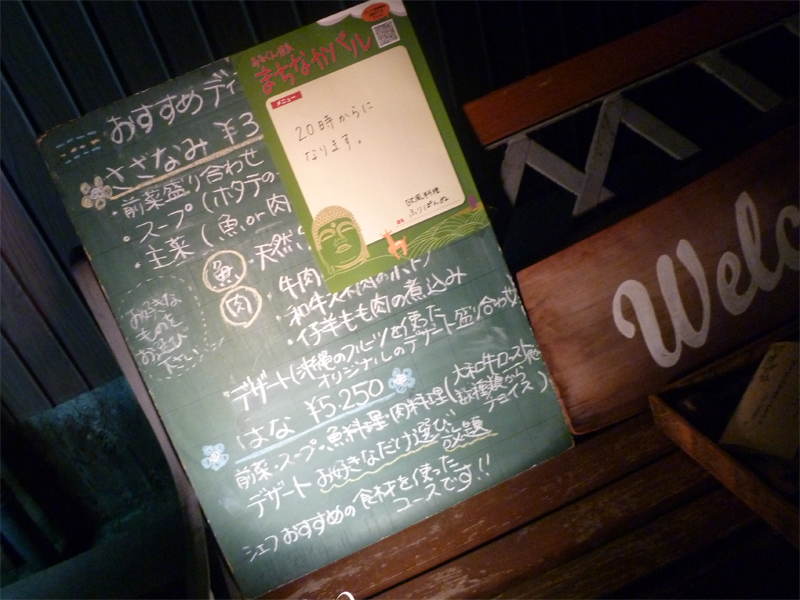 おすすめディ
ささなみ ¥3
前菜盛り合わせ
・スープ(ホタテの
・主菜(魚or肉
魚・天然
肉・牛肉
和牛
・仔羊もも肉の煮込み
お好きな
ものを
お選び
下さい
・デザート(沖縄のフルーツを使った
オリジナルのデザート盛り合わせ
はな ¥5.250
前菜・スープ・魚料理・肉料理(大和牛ロースト他
数種類から
チョイス)
デザート お好きなだけ選び
放題
シェフおすすめの食材を使った
コースです!!
まちなかバル
メニュー
20時からに
なります。
欧風料理
Welc